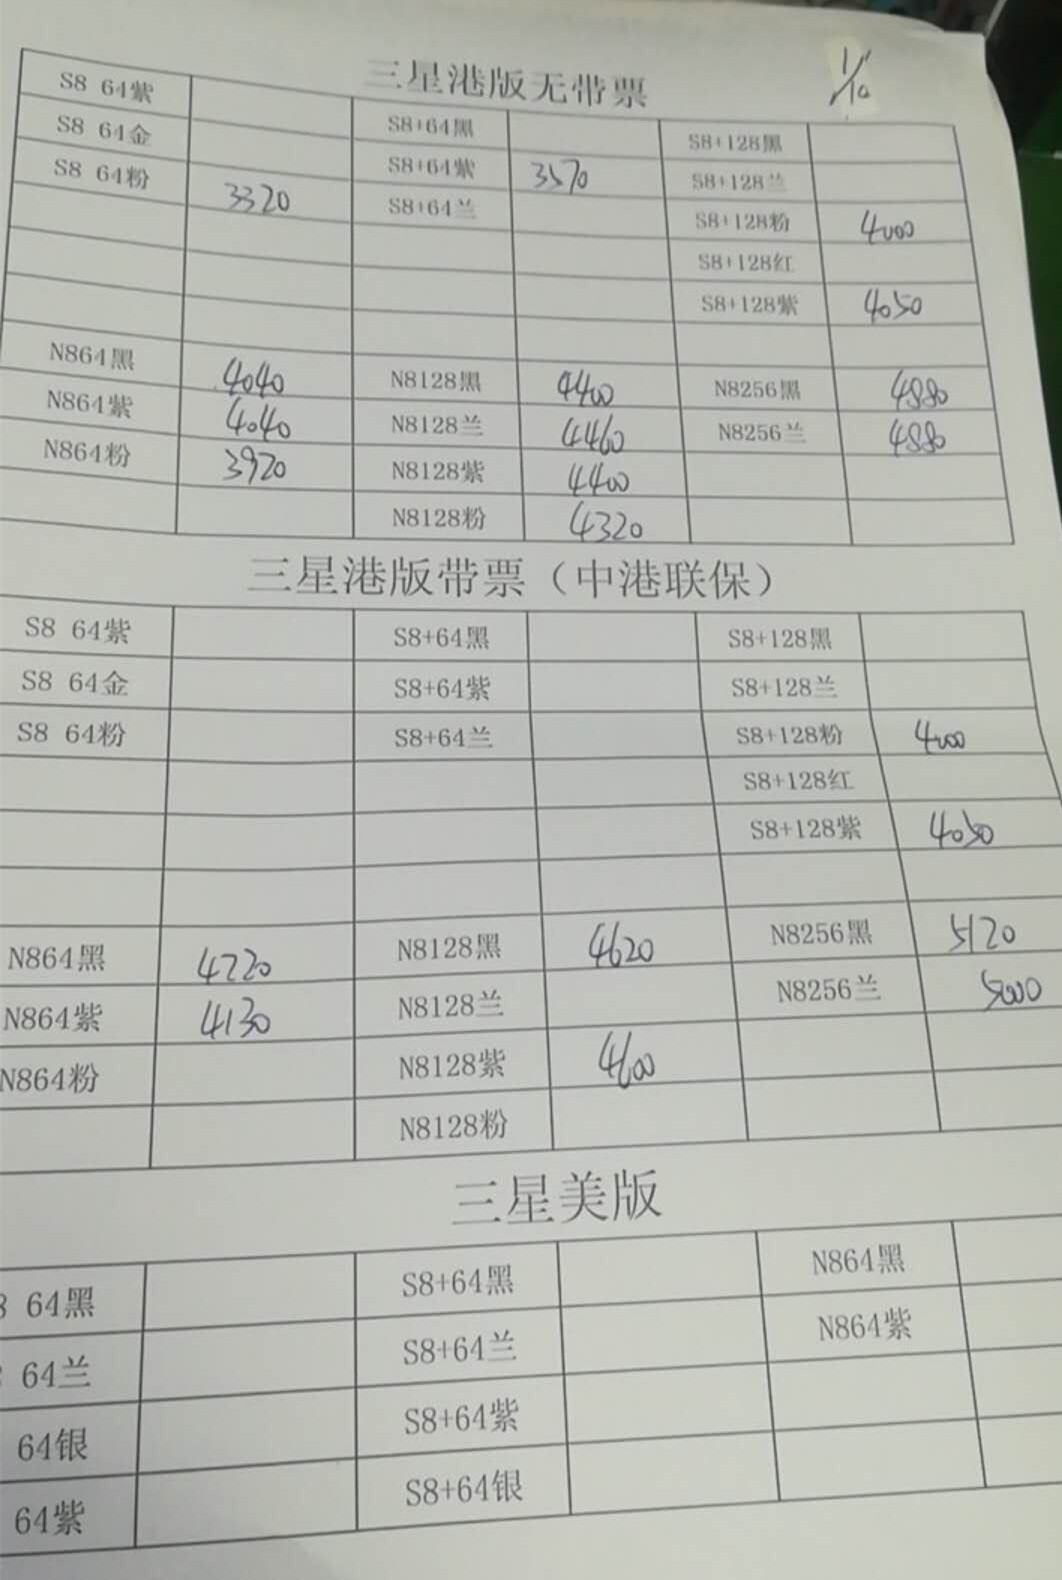 三星港版无带票 1/10
S8 64紫
S8 64金 S8+64黑 S8+128黑
S8 64粉 3320 S8+64紫 3570 S8+128兰
S8+64兰 S8+128粉 4000
S8+128红
S8+128紫 4050
N864黑 4040 N8128黑 4400 N8256黑 4880
N864紫 4040 N8128兰 4460 N8256兰 4880
N864粉 3920 N8128紫 4400
N8128粉 4320
三星港版带票（中港联保）
S8 64紫 S8+64黑 S8+128黑
S8 64金 S8+64紫 S8+128兰
S8 64粉 S8+64兰 S8+128粉 4000
S8+128红
S8+128紫 4050
N864黑 4220 N8128黑 4620 N8256黑 5120
N864紫 4130 N8128兰 N8256兰 5000
N864粉 N8128紫 4600
N8128粉
三星美版
8 64黑 S8+64黑 N864黑
64兰 S8+64兰 N864紫
64银 S8+64紫
64紫 S8+64银